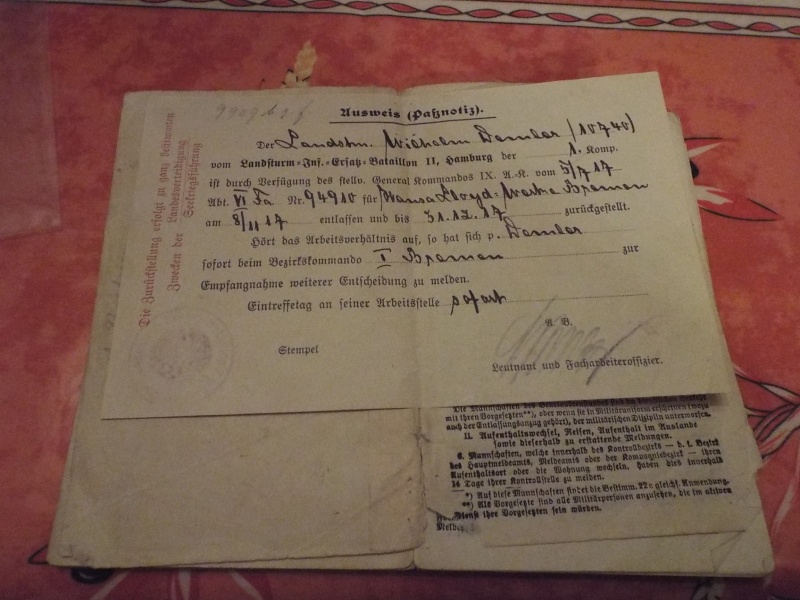 Ausweis (Paßnotiz).
Der Landstm. Wilhelm Demler (10740)
vom Landsturm-Inf.-Ersatz-Bataillon II, Hamburg der 1. Komp.
ist durch Verfügung des stellv. General Kommandos IX. A.-K. vom 5/7 17
Abt. VI Fa Nr. 94910 für Hansa Lloyd-Werke Bremen
am 8/11 17 entlassen und bis 31.12.17 zurückgestellt.
Hört das Arbeitsverhältnis auf, so hat sich p. Demler
sofort beim Bezirkskommando I Bremen zur
Empfangnahme weiterer Entscheidung zu melden.
Eintreffetag an seiner Arbeitsstelle sofort
A. B.
Stempel
Leutnant und Facharbeiteroffizier.
Die Zurückstellung erfolgt zu ganz bestimmten
Zwecken der Landesverteidigung
Seekriegsführung
mit ihren Vorgesetzten**), oder wenn sie in Militäruniform erscheinen (wozu
auch der Entlassungsanzug gehört), der militärischen Disziplin unterworfen.
II. Aufenthaltswechsel, Reisen, Aufenthalt im Auslande
sowie dieserhalb zu erstattende Meldungen.
6. Mannschaften, welche innerhalb des Kontrollbezirks — d. i. Bezirk
des Hauptmeldeamts, Meldeamts oder der Kompagniebezirk — ihren
Aufenthaltsort oder die Wohnung wechseln, haben dies innerhalb
14 Tage ihrer Kontrollstelle zu melden.
*) Auf diese Mannschaften findet die Bestimm. 22 c gleichf. Anwendung.
**) Als Vorgesetzte sind alle Militärpersonen anzusehen, die im aktiven
Dienst ihre Vorgesetzten sein würden.